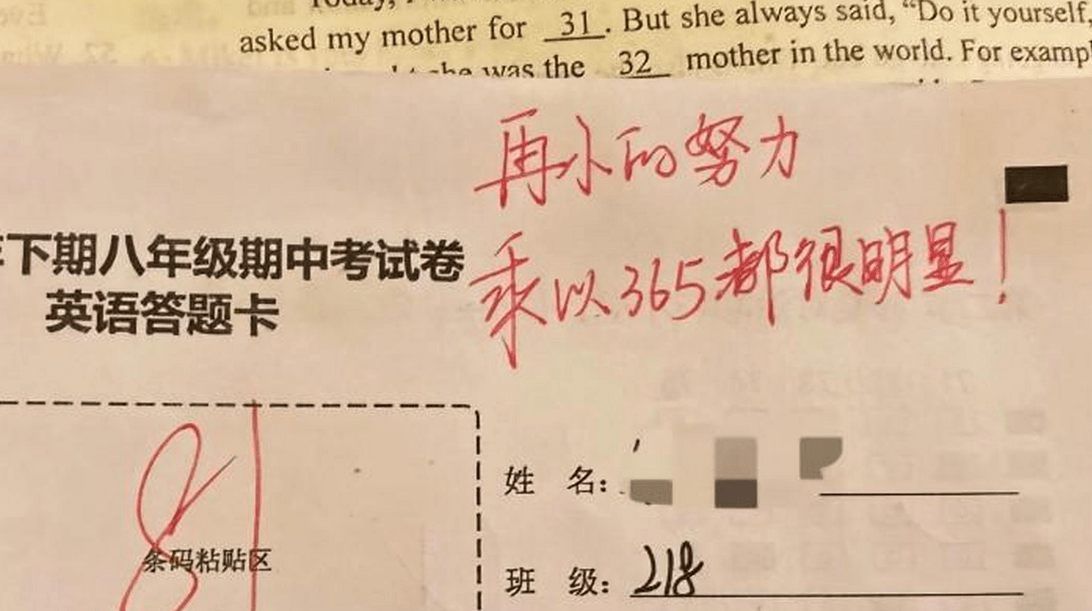 Today, I
asked my mother for 31. But she always said, “Do it yourself.
she was the 32 mother in the world. For examp
再小的努力
乘以365都很明显！
年下期八年级期中考试卷
英语答题卡
81
条码粘贴区
姓 名：
班 级：218